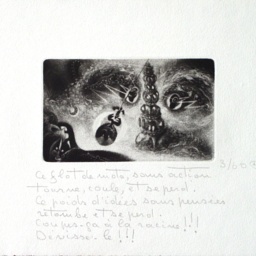 3/60
Ce flot de mots, sans action
tourne, coule, et se perd.
Ce poids d'idées sans pensées
retombe et se perd.
Coupez-ça à la racine!!!
Dévisse-le!!!